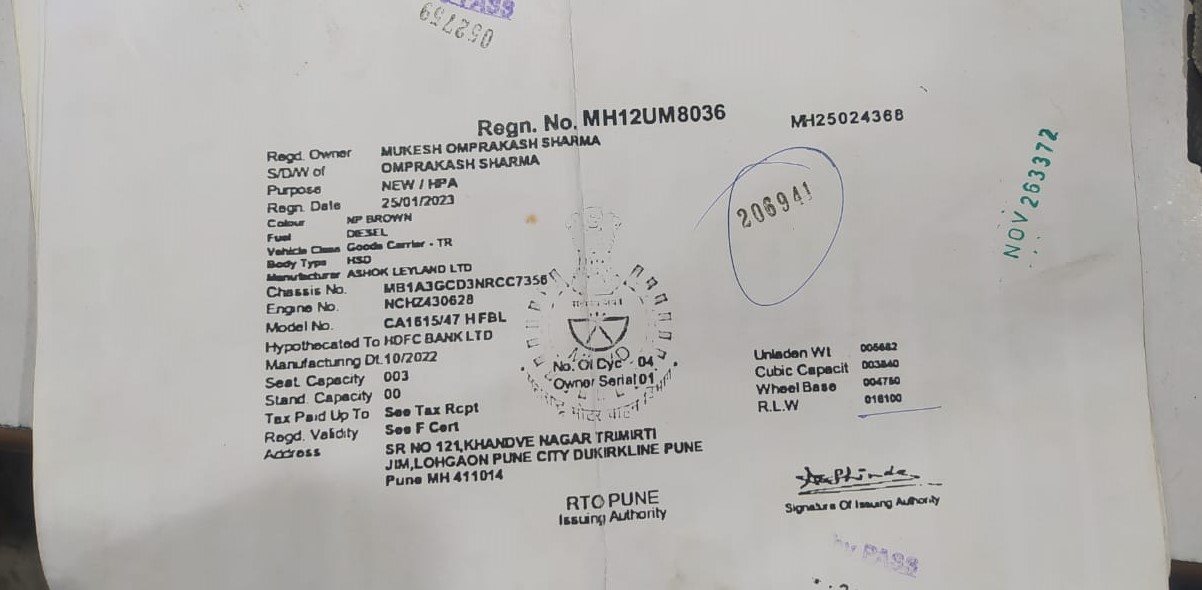 PASS
052759
Regn. No. MH12UM8036
MH25024368
Regd. Owner MUKESH OMPRAKASH SHARMA
S/D/W of OMPRAKASH SHARMA
Purpose NEW / HPA
Regn. Date 25/01/2023
Colour NP BROWN
Fuel DIESEL
Vehicle Class Goods Carrier - TR
Body Type HSD
Manufacturer ASHOK LEYLAND LTD
Chassis No. MB1A3GCD3NRCC7356
Engine No. NCHZ430628
Model No. CA1615/47 H FBL
Hypothecated To HDFC BANK LTD
Manufacturing Dt. 10/2022
Seat. Capacity 003
Stand. Capacity 00
Tax Paid Up To See Tax Rcpt
Regd. Validity See F Cert
Address SR NO 121,KHANDVE NAGAR TRIMIRTI
JIM,LOHGAON PUNE CITY DUKIRKLINE PUNE
Pune MH 411014
No. Of Cyc - 04
Owner Serial 01
206941
NOV 263372
Unladen Wt 005682
Cubic Capacit 003840
Wheel Base 004750
R.L.W 016100
RTO PUNE
Issuing Authority
Signature Of Issuing Authority
by PASS